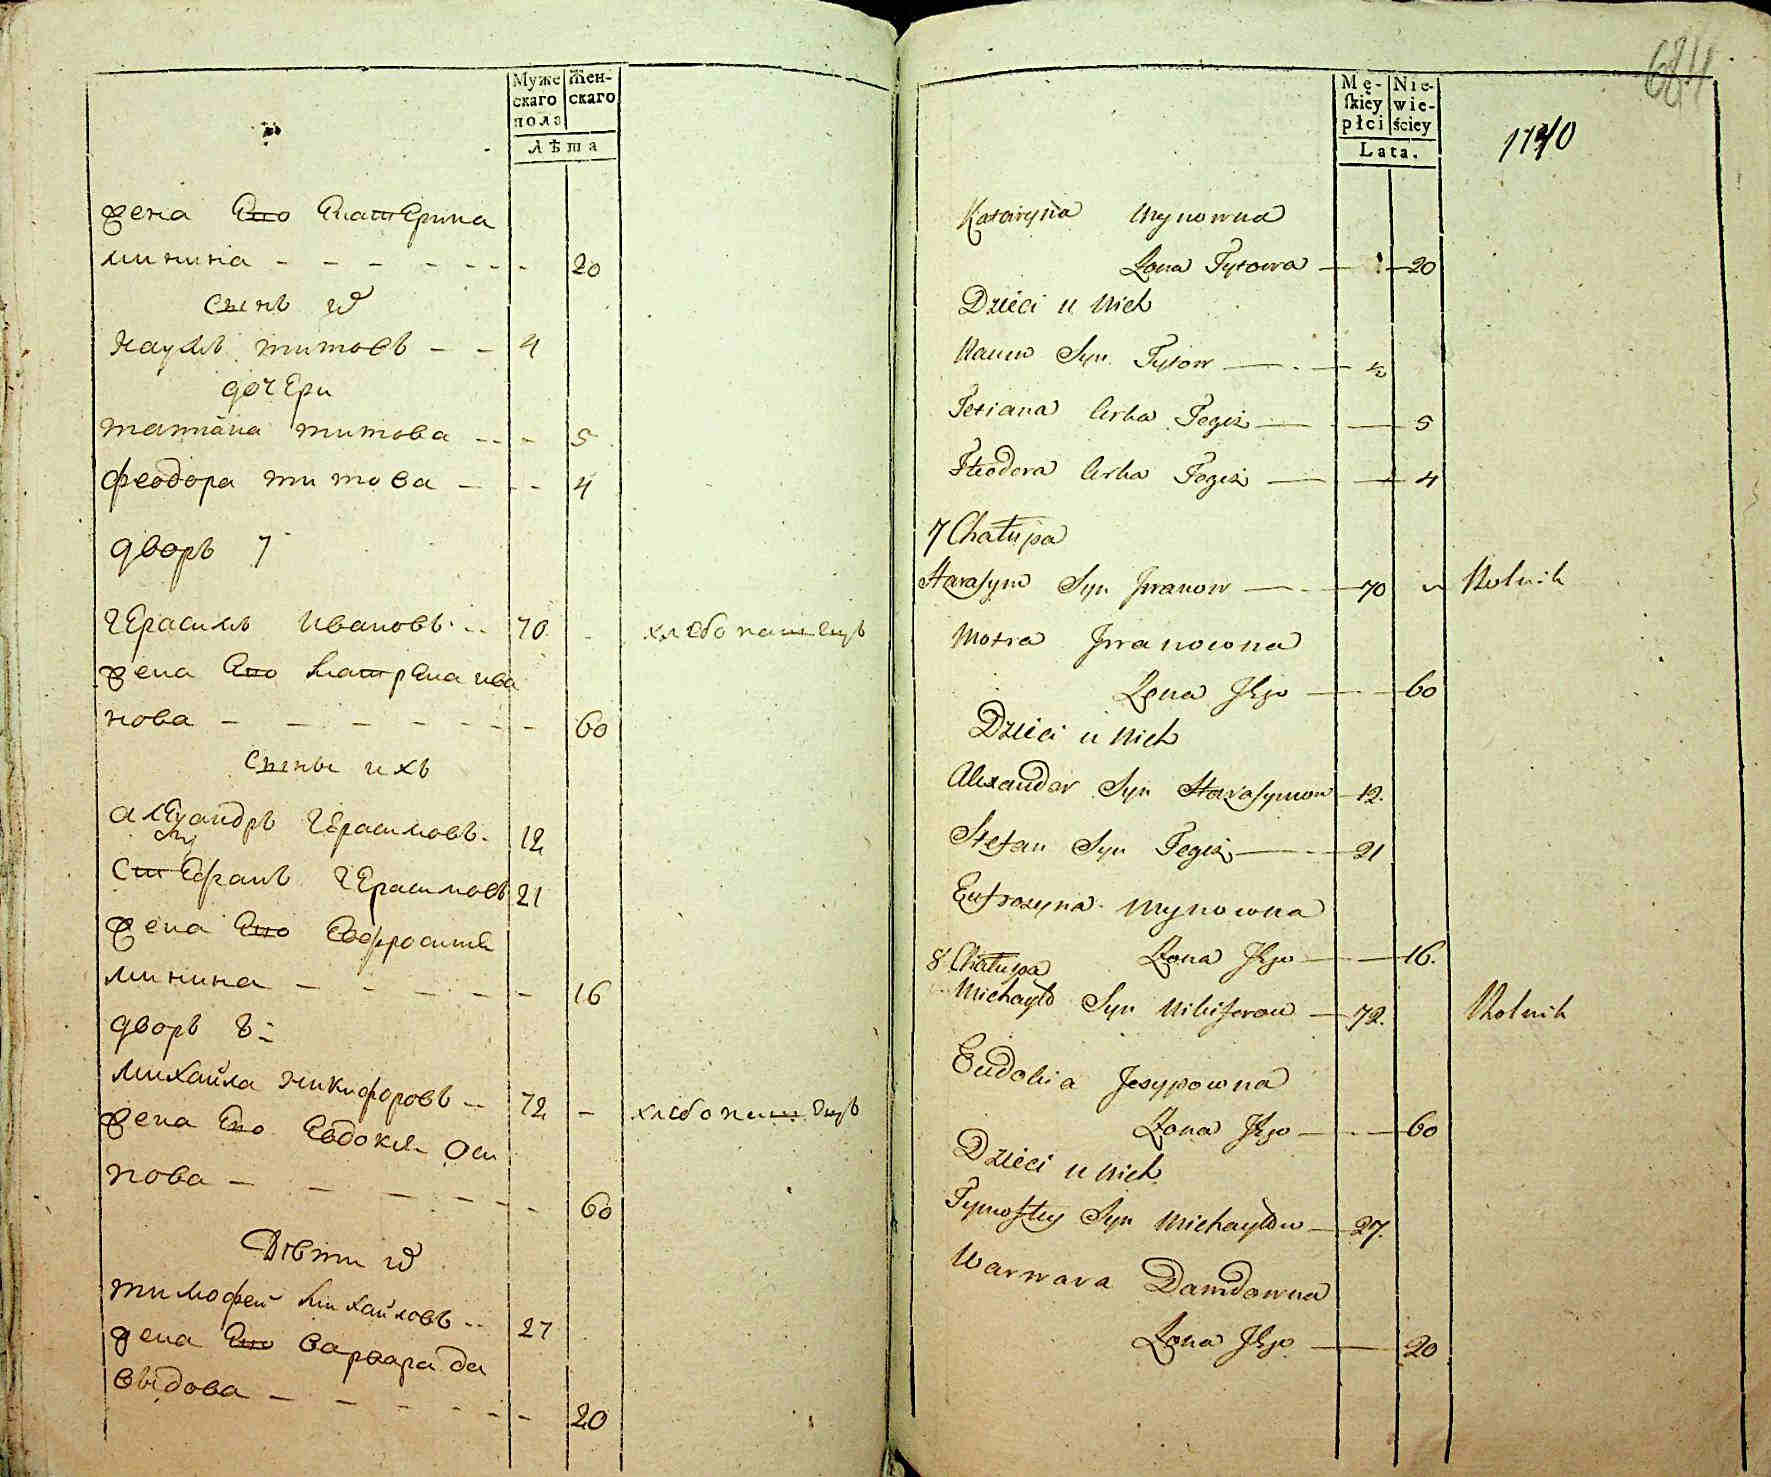 Муже
скаго
пола
Жен-
скаго
Лѣта
жена Его Екатерина
минина - - - - - - - 20
сынъ ихъ
наумъ титовъ - - 4
дочери
татиана титова - - - 5
феодора титова - - - 4
дворъ 7
герасимъ ивановъ - - 70 - хлебопашецъ
жена Его матрена ива
нова - - - - - - - 60
сыны ихъ
алеѯандръ герасимовъ - 12
стефанъ герасимовъ 21
жена Его Евфросиния
минина - - - - - - 16
дворъ 8
михайла никифоровъ - - 72 - хлебопашецъ
жена Его Евдокия Оси
пова - - - - - - - 60
Дѣти ихъ
тимофей михайловъ - - 27
жена Его варвара да
выдова - - - - - - - 20
684
Mę-
skiey
płci
Nie-
wie-
ściey
Lata.
1140
Kataryna Mynowna
Żona Tytowa — 20
Dzieci u Nich
Naum Syn Tytow — 4
Tetiana Corka Tegiż — 5
Fteodora Corka Tegiż — 4
7 Chałupa
Harasym Syn Jwanow — 70 Rolnik
Motra Jwanowna
Żona Jego — 60
Dzieci u Nich
Alexander Syn Harasymow — 12.
Stefan Syn Tegiż — 21
Eufrozyna Mynowna
Żona Jego — 16.
8 Chałupa
Michayło Syn Nikiferow — 72. Rolnik
Eudokia Jesypowna
Żona Jego — 60
Dzieci u Nich
Tymoftey Syn Michayłow — 27.
Warwara Dawidowna
Żona Jego — 20